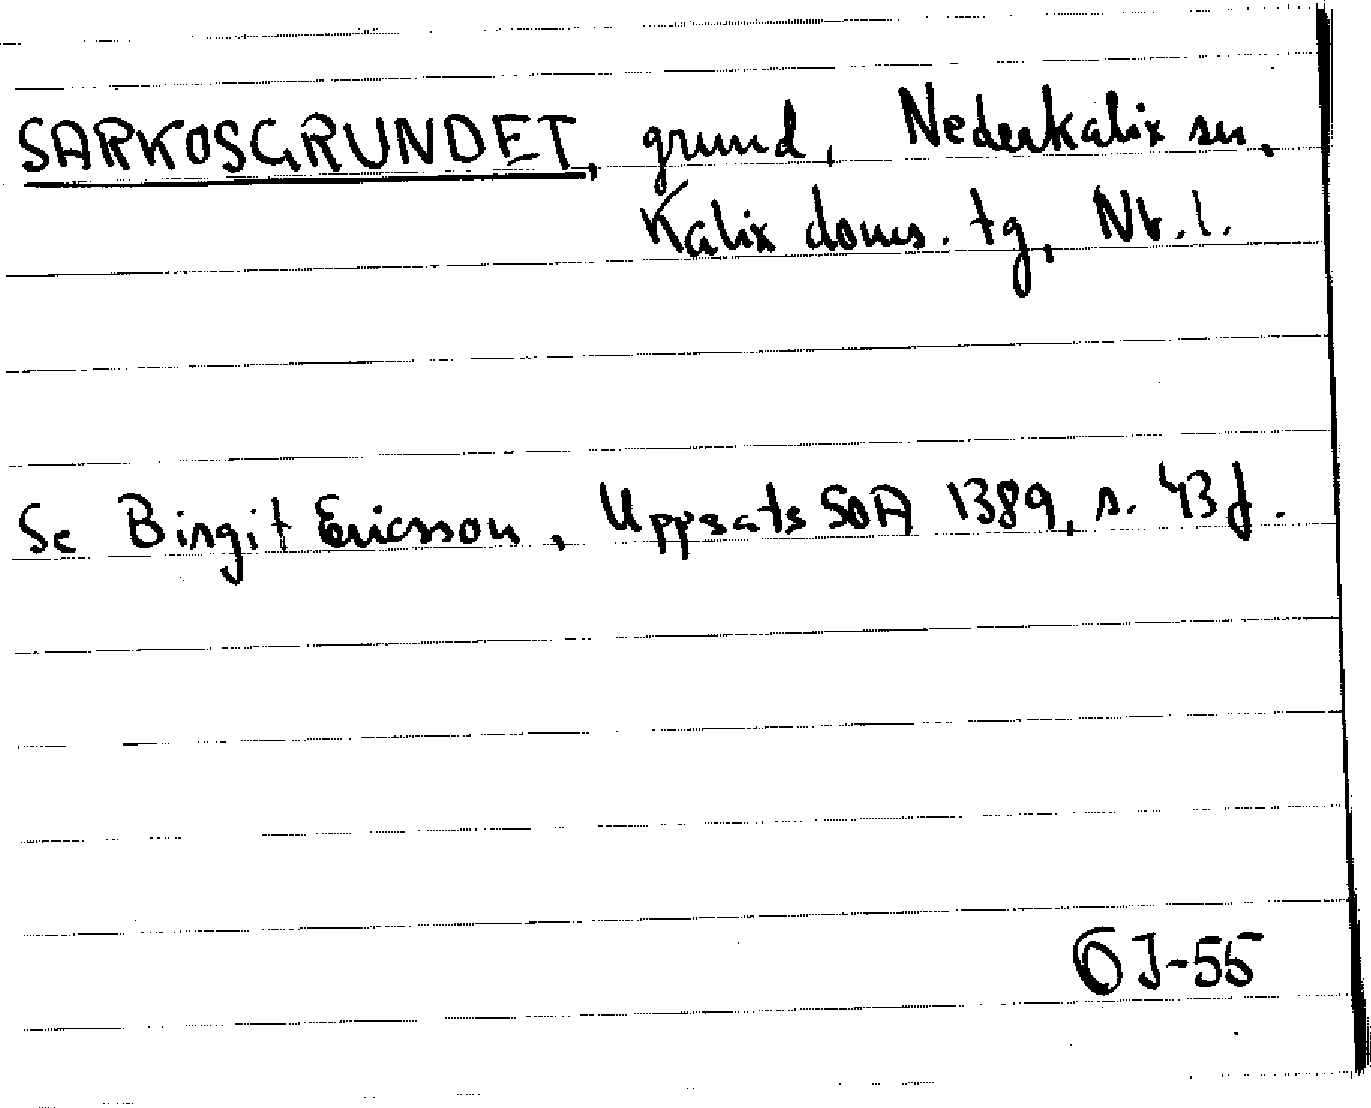 SARKOSGRUNDET, grund, Nederkalix sn,
Kalix doms. tg, Nb.l.
Se Birgit Ericsson, Uppsats SOA 1389, s. 43f.
ÖJ-55